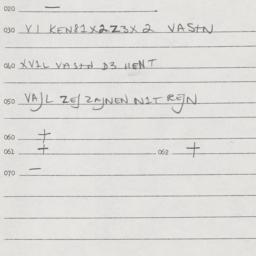 020 —
030 VI KEN81X2Z3X2 VASTN
040 XV1L VASTN D3 HENT
050 VAJL ZEJ ZAJNEN N1T REJN
060 +
061 + 062 +
070 —